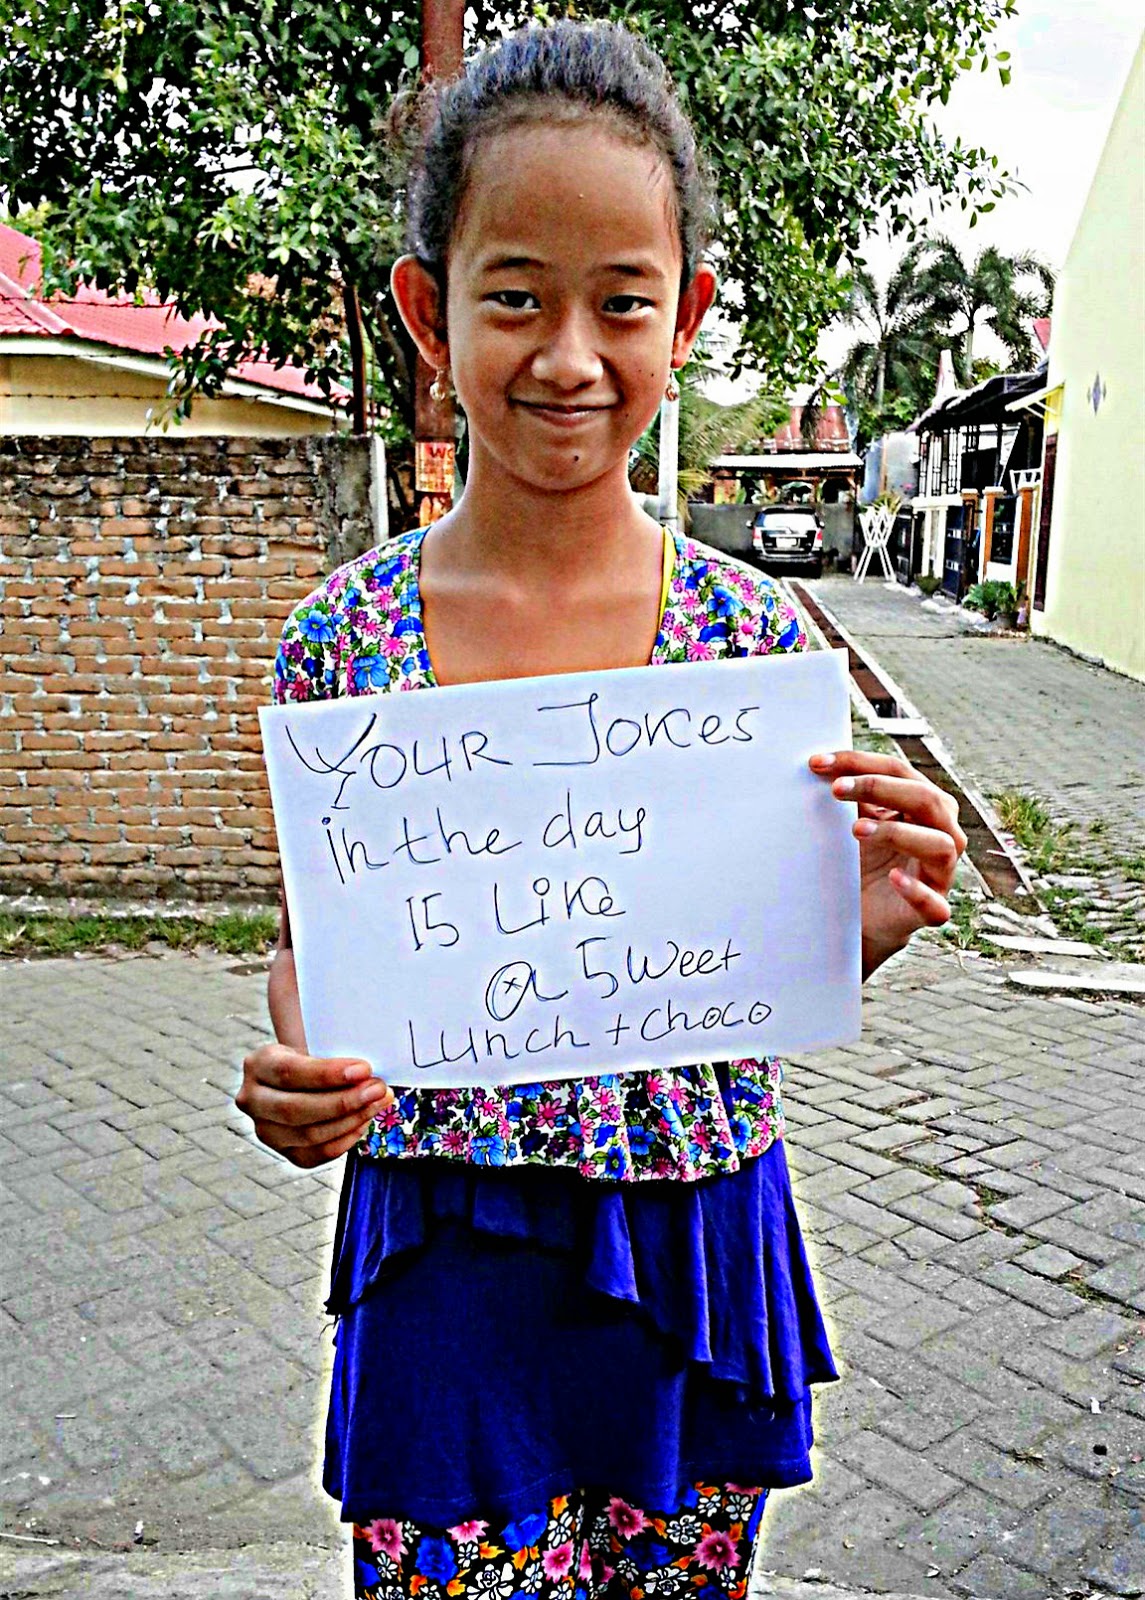 YOUR JOKes
in the day
IS Like
a Sweet
Lunch + choco
WC